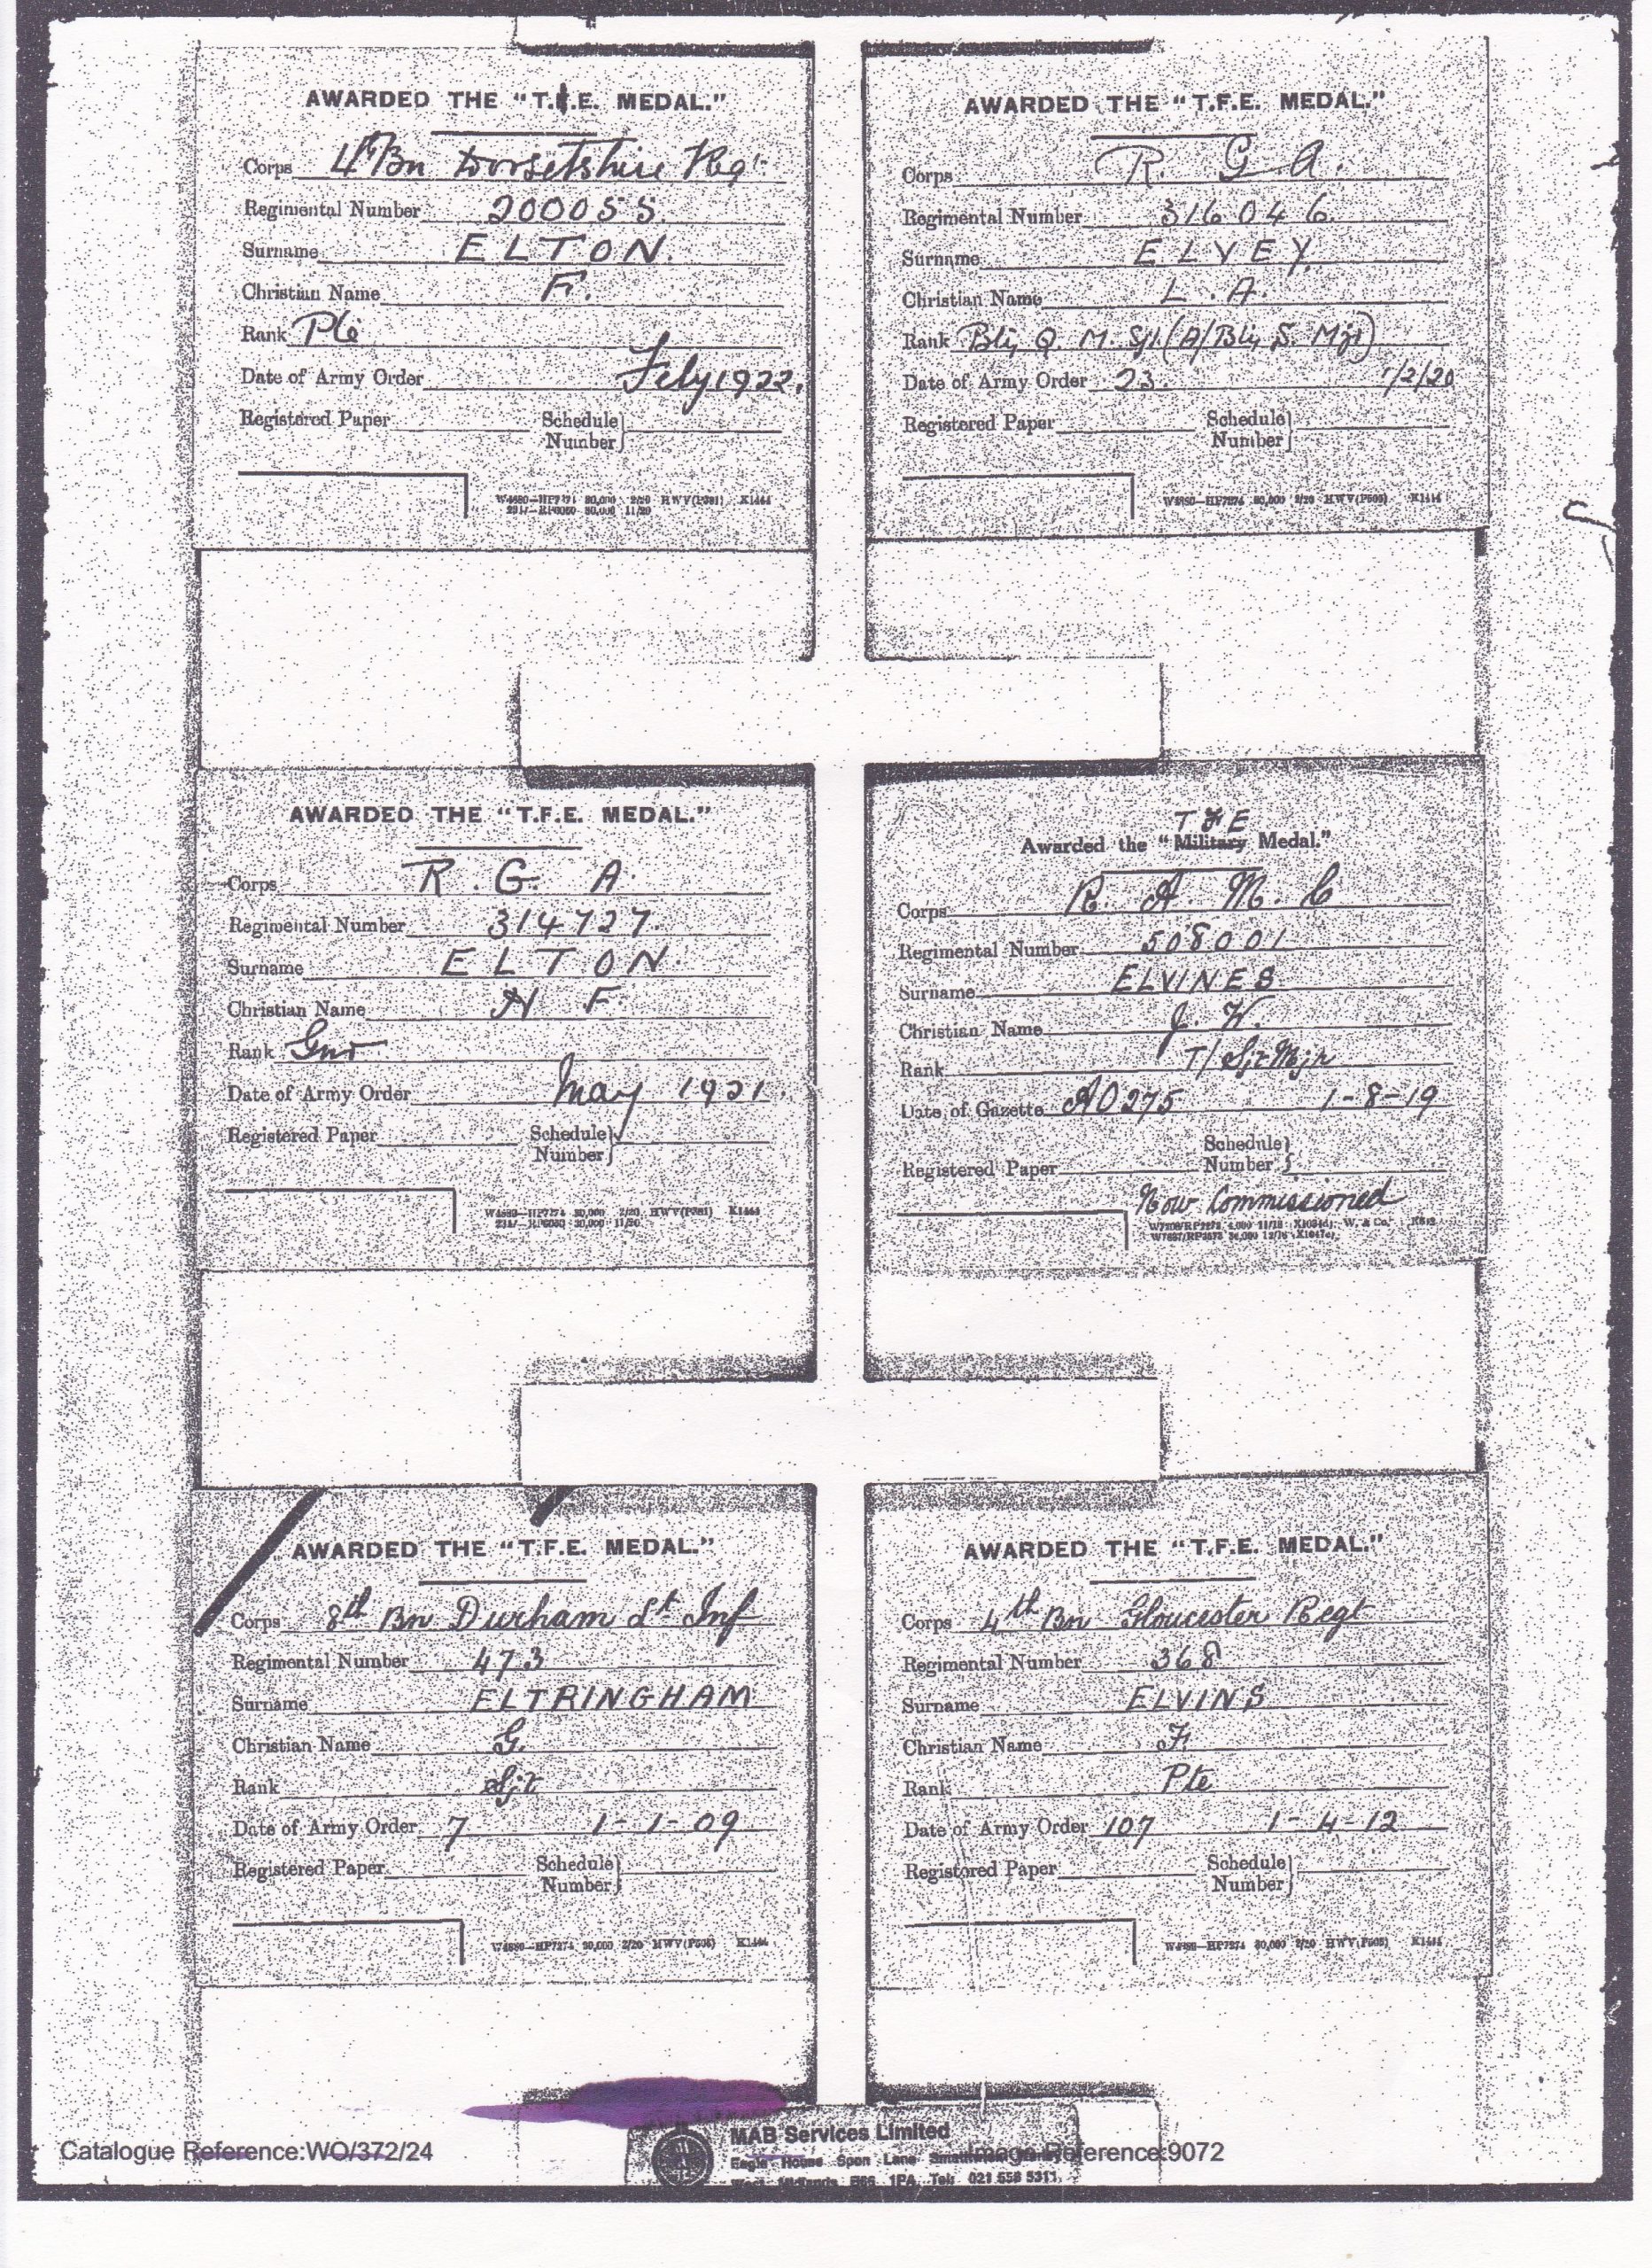 AWARDED THE "T.F.E. MEDAL."
Corps 4th Bn Dorsetshire Regt
Regimental Number 200055.
Surname ELTON.
Christian Name F.
Rank Pte
Date of Army Order Feby 1922.
Registered Paper Schedule Number
W4680—HP7274 30,000 2/20 HWV(P381) K1444
RP6060 30,000 11/20
AWARDED THE "T.F.E. MEDAL."
Corps R. G. A.
Regimental Number 316046.
Surname ELVEY.
Christian Name L. A.
Rank Bty Q. M. Sjt. (A/Bty S. Mjr)
Date of Army Order 23. 1/2/20
Registered Paper Schedule Number
W4680—HP7274 30,000 2/20 HWV(P505) K1444
AWARDED THE "T.F.E. MEDAL."
Corps R. G. A.
Regimental Number 314727.
Surname ELTON.
Christian Name H F.
Rank Gnr
Date of Army Order May 1921.
Registered Paper Schedule Number
W4680—HP7274 30,000 2/20 HWV(P381) K1444
RP6060 30,000 11/20
T F E
Awarded the "Military Medal."
Corps R. A. M. C
Regimental Number 508001
Surname ELVINES
Christian Name J. W.
Rank T/Sjt Mjr
Date of Gazette AO 275 1-8-19
Schedule
Registered Paper Number
Now Commissioned
AWARDED THE "T.F.E. MEDAL."
Corps 8th Bn Durham Lt Inf
Regimental Number 473
Surname ELTRINGHAM
Christian Name G.
Rank Sjt
Date of Army Order 7 1-1-09
Registered Paper Schedule Number
W4680—HP7274 30,000 2/20 HWV(P505) K1444
AWARDED THE "T.F.E. MEDAL."
Corps 4th Bn Gloucester Regt
Regimental Number 368
Surname ELVINS
Christian Name F
Rank Pte
Date of Army Order 107 1-4-12
Registered Paper Schedule Number
W4680—HP7274 30,000 2/20 HWV(P505) K1444
MAB Services Limited
Catalogue Reference:WO/372/24 Image Reference:9072
Eagle House Spon Lane Smethwick
West Midlands B66 1PA. Tel: 021 558 5311.